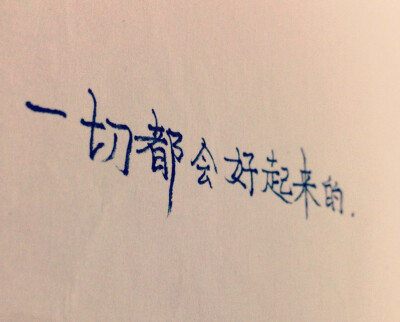 一切都会好起来的.